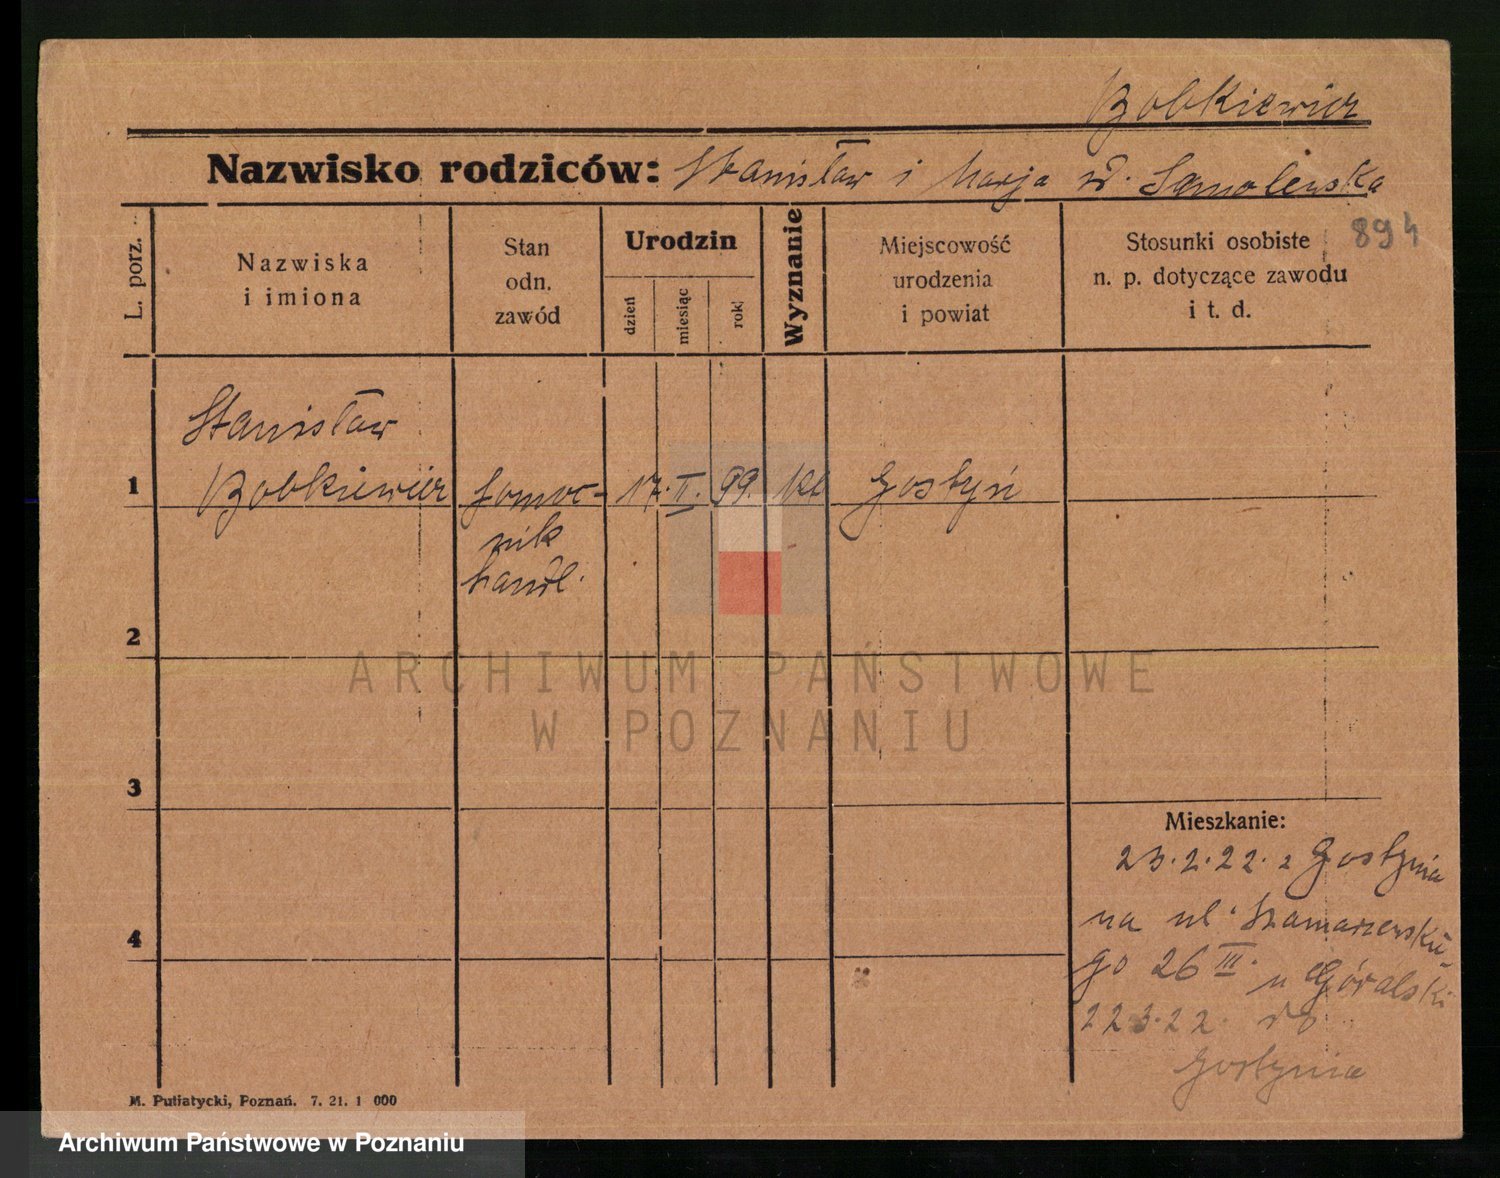 Bobkiewicz
Nazwisko rodziców: Stanisław i Marja d. Samolewska
894
L. porz.
Nazwiska
i imiona
Stan
odn.
zawód
Urodzin
dzień
miesiąc
rok
Wyznanie
Miejscowość
urodzenia
i powiat
Stosunki osobiste
n. p. dotyczące zawodu
i t. d.
Stanisław
1 Bobkiewicz pomoc- 17. II. 99. kt Gostyń
nik
handl.
2
3
4
Mieszkanie:
23.2.22. z Gostynia
na ul. Szamarzewskie-
go 26 III. u Góralski
22.3.22. do
Gostynia
M. Putiatycki, Poznań. 7. 21. 1 000
ARCHIWUM PAŃSTWOWE
W POZNANIU
Archiwum Państwowe w Poznaniu